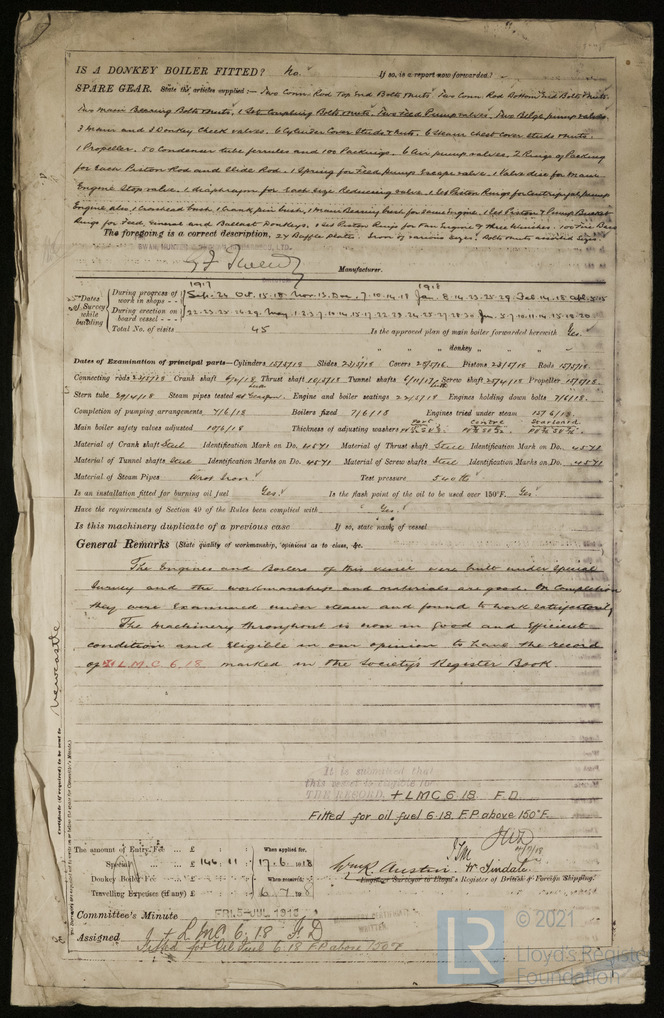 IS A DONKEY BOILER FITTED? No. If so, is a report now forwarded?
SPARE GEAR. State the articles supplied:- Two Conn Rod Top End Bolts & Nuts. Two Conn. Rod Bottom End Bolts & Nuts.
Two Main Bearing Bolts & Nuts. 1 Set Coupling Bolts & Nuts. Two Feed Pump valves. Two Bilge pump valves.
3 Main and 3 Donkey Check valves. 6 Cylinder Cover Studs & Nuts. 6 Steam chest Cover studs & nuts.
1 Propeller. 50 Condenser tube ferrules and 100 Packings. 6 Air pump valves. 2 Rings of Packing
for each Piston Rod and Slide Rod. 1 Spring for Feed pump Escape valve. 1 Valve disc for Main
Engine Stop valve. 1 diaphragm for each size Reducing valve. 1 Set Piston Rings for Centrifugal pump
Engine also 1 Crosshead bush, 1 Crank pin bush, 1 Main Bearing bush for same Engine. 1 Set Piston & Pump Bucket
Rings for Feed, General and Ballast Donkeys. 1 Set Piston Rings for Fan Engine & Three Winches. 100 Fire Bars
The foregoing is a correct description, 24 Baffle Plates. Iron of various sizes. Bolts nuts assorted sizes.
Manufacturer.
1917 1918
Dates of Survey while building
During progress of work in shops - - Sep. 24 Oct. 15. 18 Nov. 13. Dec. 7. 10. 14. 18 Jan. 8. 14. 23. 25. 29. Feb 14. 18
During erection on board vessel - - -
Total No. of visits 45 Is the approved plan of main boiler forwarded herewith Yes.
" " " donkey " " "
Dates of Examination of principal parts—Cylinders 15/5/18 Slides 23/5/18 Covers Pistons 23/5/18 Rods 15/5/18
Connecting rods Crank shaft Thrust shaft Tunnel shafts Screw shaft Propeller
Stern tube 29/4/18 Steam pipes tested Engine and boiler seatings Engines holding down bolts 7/6/18
Completion of pumping arrangements 7/6/18 Boilers fixed 7/6/18 Engines tried under steam 15/6/18
Main boiler safety valves adjusted 10/6/18 Thickness of adjusting washers Port Centre Starboard
Material of Crank shaft Steel Identification Mark on Do. 4571 Material of Thrust shaft Steel Identification Mark on Do. 4571
Material of Tunnel shafts Steel Identification Marks on Do. 4571 Material of Screw shafts Steel Identification Marks on Do. 4571
Material of Steam Pipes Wrot Iron Test pressure 540 lbs
Is an installation fitted for burning oil fuel Yes. Is the flash point of the oil to be used over 150°F. Yes
Have the requirements of Section 49 of the Rules been complied with Yes.
Is this machinery duplicate of a previous case If so, state name of vessel
General Remarks (State quality of workmanship, opinions as to class, &c.
The Engines and Boilers of this vessel were built under special
survey and the workmanship and materials are good. On completion
they were examined under steam and found to work satisfactorily
The machinery throughout is now in good and efficient
condition and eligible in our opinion to have the record
of + L.M.C 6.18 marked in the Society's Register Book.
Newcastle
Certificate (if required) to be sent to
It is submitted that
this vessel is eligible for
THE RECORD. + LMC 6.18 F.D.
Fitted for oil fuel 6.18. F.P. above 150°F.
The amount of Entry Fee - - £ When applied for.
Special - - £ 144.11 17.6.1918
Donkey Boiler Fee - - £ When received.
Travelling Expenses (if any) £ 6.7.1918
Wm R. Austin. W. Tindale.
Engineer Surveyor to Lloyd's Register of British & Foreign Shipping.
Committee's Minute FRI. 5-JUL 1918
Assigned + LMC 6.18 F.D
Fitted for Oil Fuel 6.18 F.P. above 150°F
© 2021
LR
Lloyd's Register
Foundation